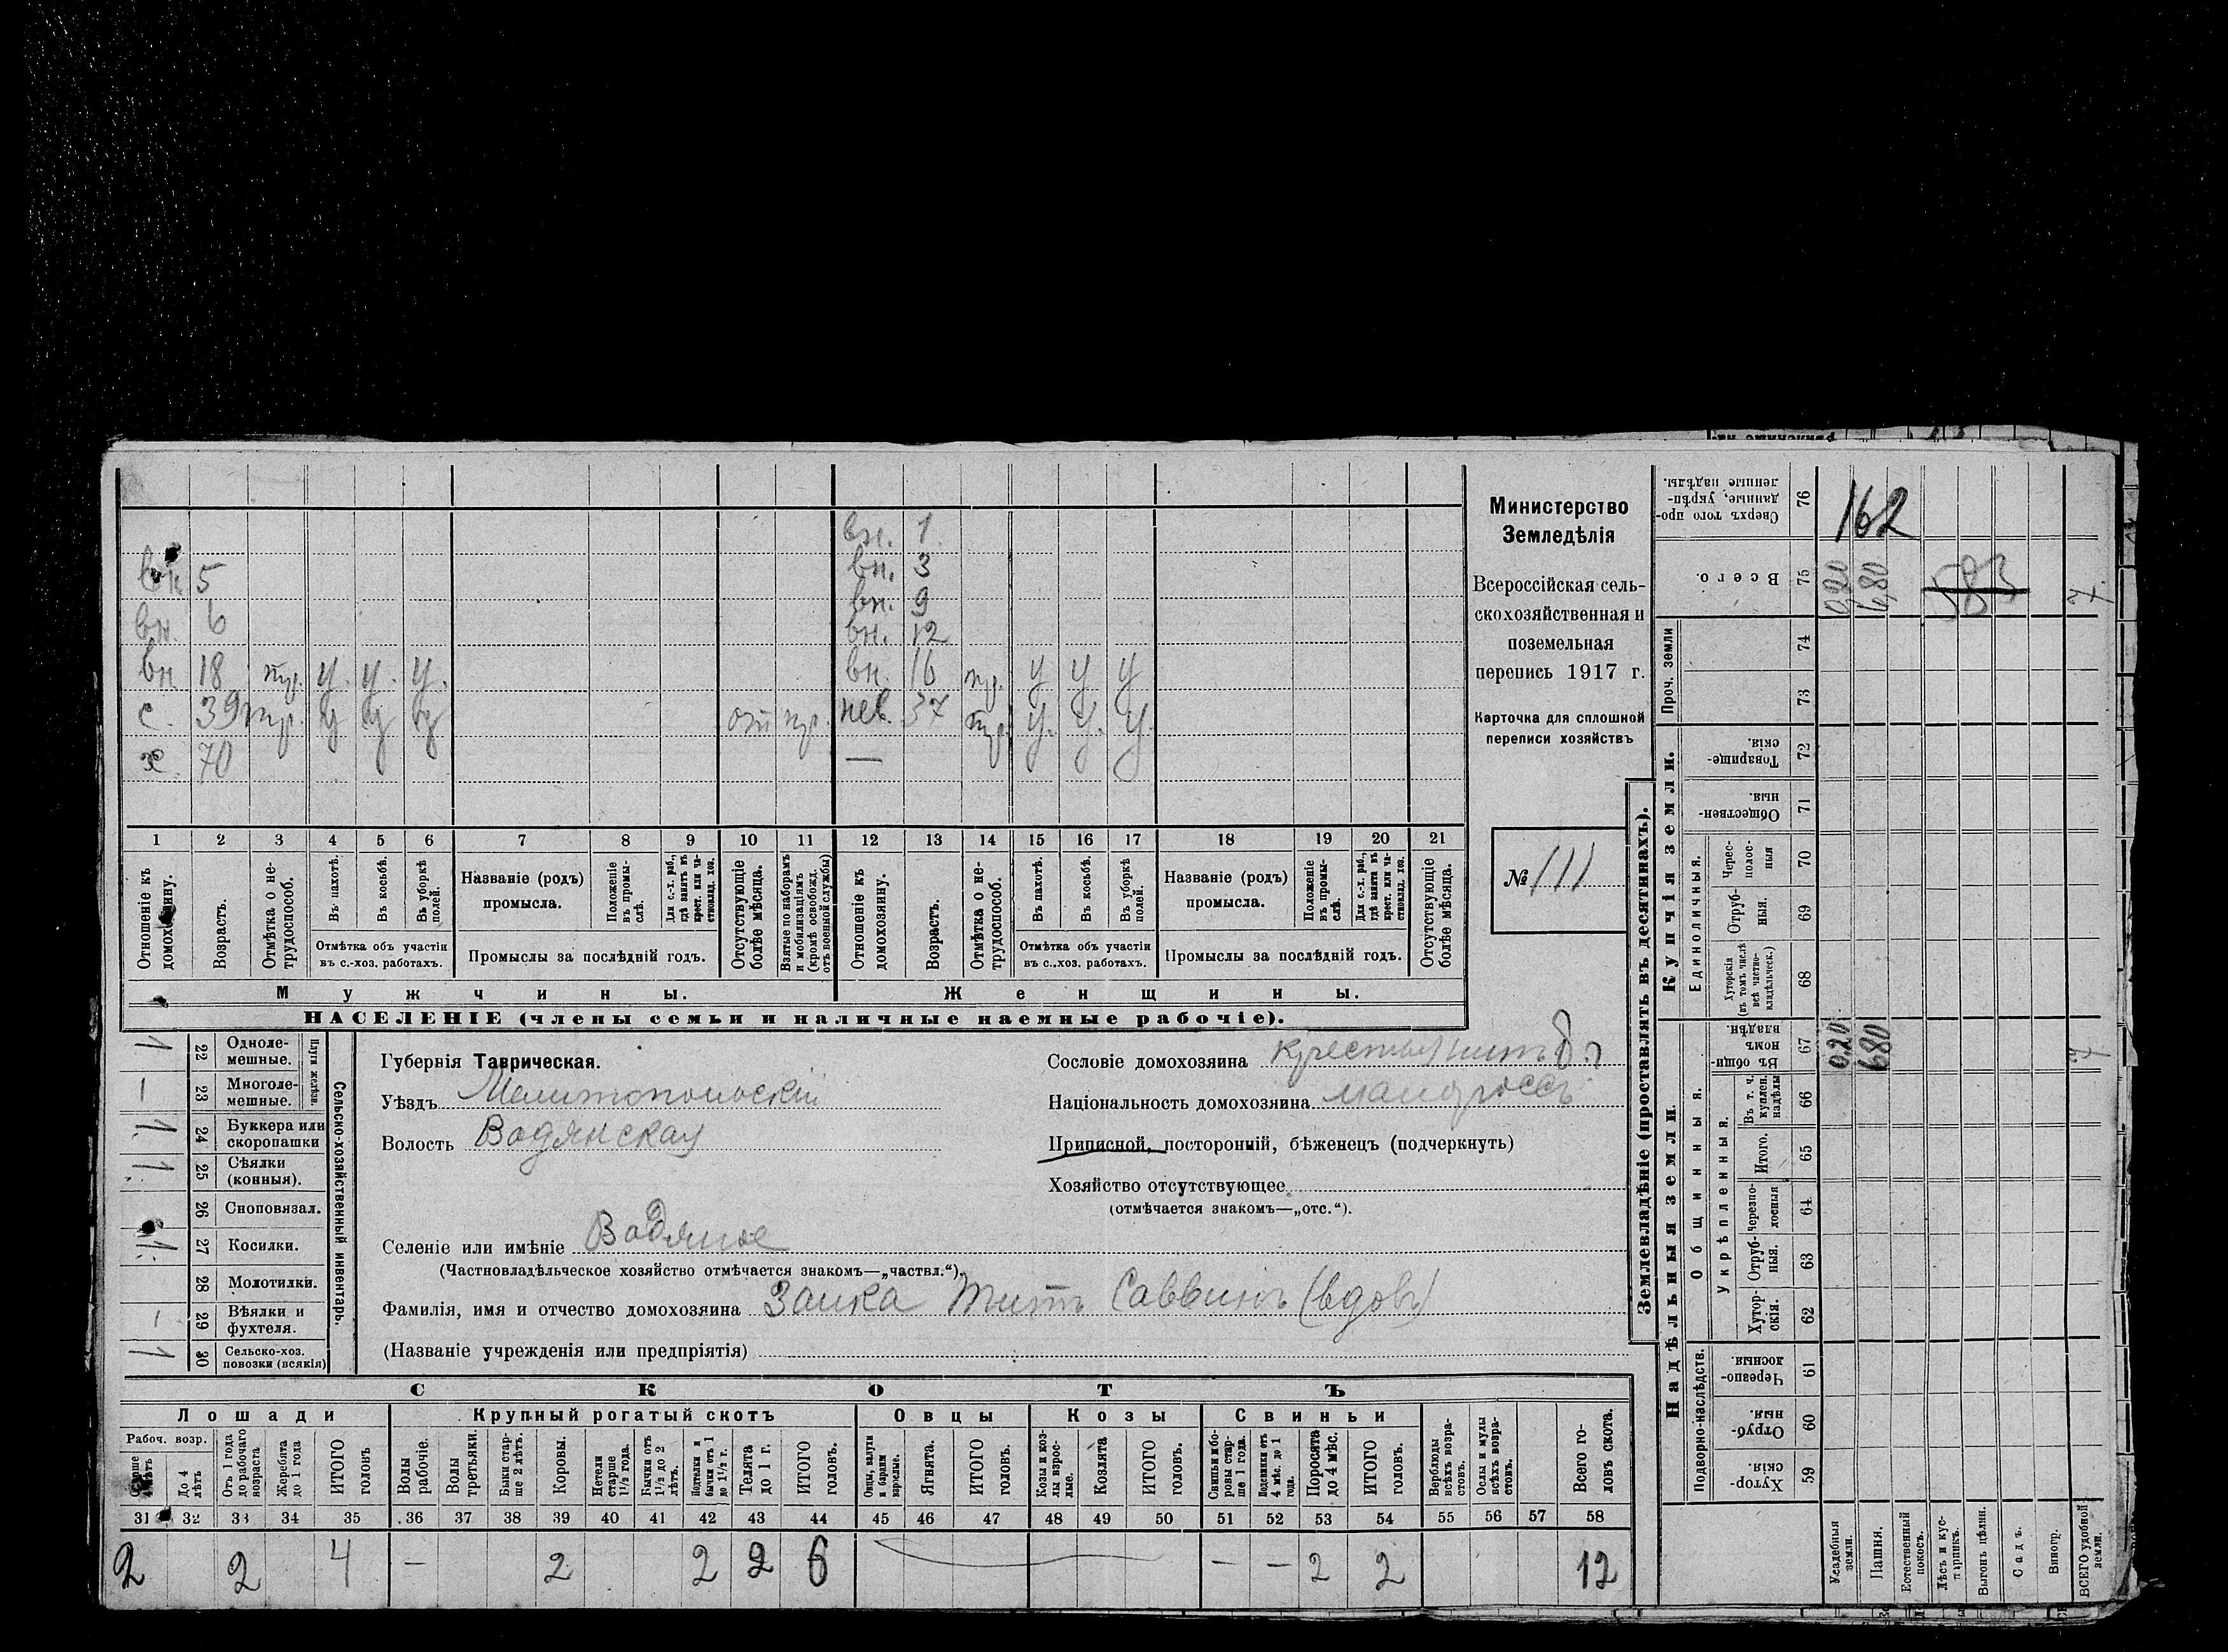 вн. 1
вн. 3
вн 5
вн. 9
вн. 6
вн. 12
вн 18 тр. у. у. у. вн. 16 тр. у у у
с. 39 тр. у у у от тр. нев. 37 тр. у. у. у.
х. 70 —
1 2 3 4 5 6 7 8 9 10 11 12 13 14 15 16 17 18 19 20 21
Отношеніе къ домохозяину.
Возрастъ.
Отмѣтка о не-трудоспособ.
Въ пахотѣ.
Въ косьбѣ.
Въ уборкѣ полей.
Отмѣтка объ участіи въ с.-хоз. работахъ.
Названіе (родъ) промысла.
Положеніе въ промы-слѣ.
Для с.-х. раб., гдѣ занятъ въ крест. или ча-стновлад. хоз.
Промыслы за послѣдній годъ.
Отсутствующіе болѣе мѣсяца.
Взятые по наборамъ и мобилизаціямъ (кромѣ освобожд. отъ военной службы)
Отношеніе къ домохозяину.
Возрастъ.
Отмѣтка о не-трудоспособ.
Въ пахотѣ.
Въ косьбѣ.
Въ уборкѣ полей.
Отмѣтка объ участіи въ с.-хоз. работахъ.
Названіе (родъ) промысла.
Положеніе въ промы-слѣ.
Для с.-х. раб., гдѣ занята въ крест. или ча-стновлад. хоз.
Промыслы за послѣдній годъ.
Отсутствующіе болѣе мѣсяца.
Мужчины. Женщины.
НАСЕЛЕНІЕ (члены семьи и наличные наемные рабочіе).
Министерство
Земледѣлія
Всероссійская сель-
скохозяйственная и
поземельная
перепись 1917 г.
Карточка для сплошной
переписи хозяйствъ
№ 111
Сельско-хозяйственный инвентарь.
Плуги желѣзн.
1 22 Одноле-мешные.
— 23 Многоле-мешные.
1. 24 Буккера или скоропашки
1. 25 Сѣялки (конныя).
26 Сноповязал.
1. 27 Косилки.
28 Молотилки.
— 29 Вѣялки и фухтеля.
1 30 Сельско-хоз. повозки (всякія)
Губернія Таврическая.
Уѣздъ Мелитопольскій
Волость Водянская
Селеніе или имѣніе Водяное
(Частновладѣльческое хозяйство отмѣчается знакомъ—„частвл.“)
Фамилія, имя и отчество домохозяина Заика Титъ Саввинъ (вдовъ)
(Названіе учрежденія или предпріятія)
Сословіе домохозяина крестьянинъ
Національность домохозяина малороссъ
Приписной, посторонній, бѣженецъ (подчеркнуть)
Хозяйство отсутствующее
(отмѣчается знакомъ—„отс.“).
СКОТЪ
Лошади Крупный рогатый скотъ Овцы Козы Свиньи
Рабоч. возр.
До 4 лѣтъ
Отъ 1 года до рабочаго возраста
Жеребята до 1 года
ИТОГО головъ
Волы рабочіе.
Волы третьяки.
Быки стар-ше 2 лѣтъ.
Коровы.
Нетели старше 1½ года.
Бычки отъ 1½ до 2 лѣтъ.
Подтелки и бычки отъ 1 до 1½ г.
Телята до 1 г.
ИТОГО головъ.
Овцы, валухи и бараны взрослые.
Ягнята.
ИТОГО головъ.
Козы и коз-лы взрос-лые.
Козлята
ИТОГО головъ.
Свиньи и бо-ровы стар-ше 1 года.
Подсвинки отъ 4 мѣс. до 1 года.
Поросята до 4 мѣс.
ИТОГО головъ.
Верблюды всѣхъ возра-стовъ.
Ослы и мулы всѣхъ возра-стовъ.
Всего го-ловъ скота.
31 32 33 34 35 36 37 38 39 40 41 42 43 44 45 46 47 48 49 50 51 52 53 54 55 56 57 58
2 2 4 — 2 2 2 6 — — 2 2 12
Землевладѣніе (проставлять въ десятинахъ).
Надѣльныя земли. Купчія земли. Проч. земли
Подворно-наслѣдств. Общинныя. Укрѣпленныя. Единоличныя.
Сверхъ того про-данные, укрѣп-ленные надѣлы. 76 162
Всего. 75 0,20 6,80 583 7
74
73
Товарище-скія. 72
Обществен-ныя. 71
Черес-полос-ныя 70
Отруб-ныя. 69
Хуторскія (въ томъ числѣ всѣ частно-владѣльческ.) 68
Въ общин-номъ владѣн. 67 0.20 6.80 7
Въ т. ч. куплен. надѣлы 66
Итого. 65
Черезпо-лосныя 64
Отруб-ныя. 63
Хутор-скія. 62
Черезпо-лосныя. 61
Отруб-ныя. 60
Хутор-скія. 59
Усадебныя земли.
Пашня.
Естественный покосъ.
Лѣсъ и кус-тарникъ.
Выгонъ цѣлин.
Садъ.
Виногр.
ВСЕГО удобной земли.